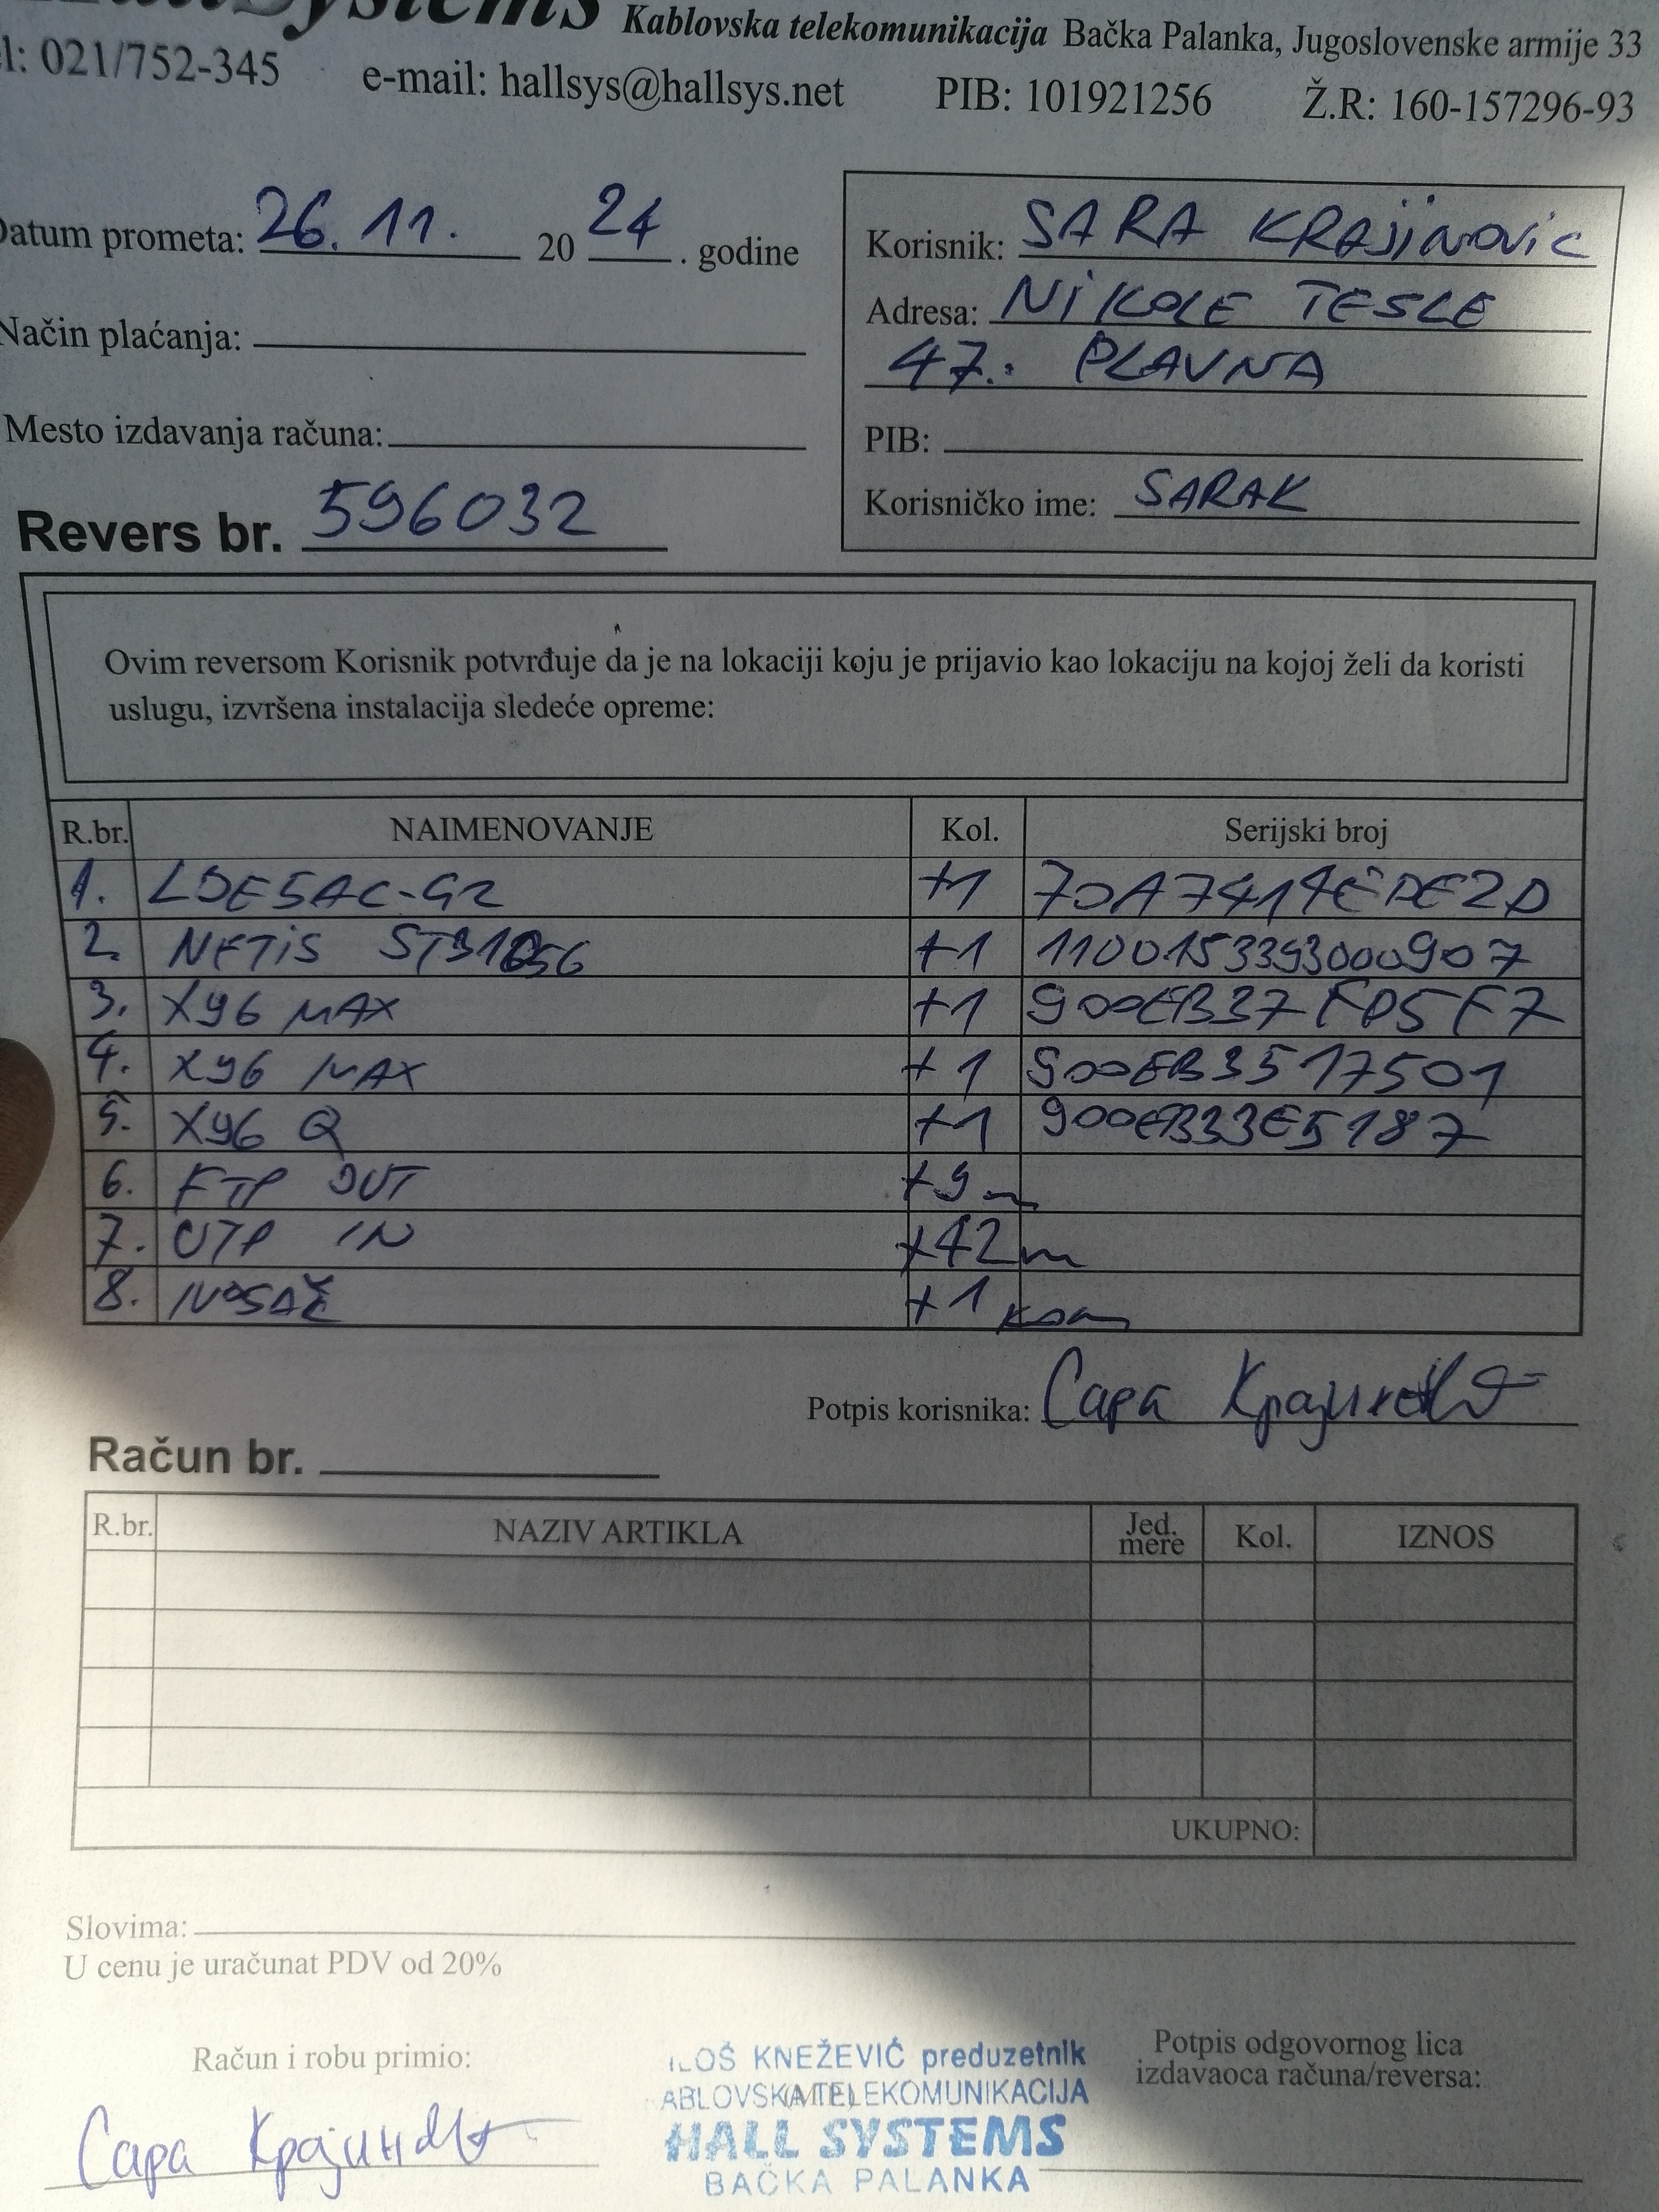 HallSystems Kablovska telekomunikacija Bačka Palanka, Jugoslovenske armije 33
l: 021/752-345 e-mail: hallsys@hallsys.net PIB: 101921256 Ž.R: 160-157296-93
Datum prometa: 26. 11. 20 24 . godine
Korisnik: SARA KRAJINOVIC
Adresa: NIKOLE TESLE
47. PLAVNA
Način plaćanja:
Mesto izdavanja računa:
PIB:
Korisničko ime: SARAK
Revers br. 596032
Ovim reversom Korisnik potvrđuje da je na lokaciji koju je prijavio kao lokaciju na kojoj želi da koristi
uslugu, izvršena instalacija sledeće opreme:
R.br. NAIMENOVANJE Kol. Serijski broj
1. +1
2. NETIS +1 1100153393000907
3. X96 MAX +1 900EB37FD5F7
4. X96 MAX +1 900EB3517501
5. X96 Q +1 900EB33E5187
6. FTP OUT +9 m
7. UTP IN +42 m
8. NOSAČ +1 kom
Potpis korisnika: Сара Крајиновић
Račun br.
R.br. NAZIV ARTIKLA Jed. mere Kol. IZNOS
UKUPNO:
Slovima:
U cenu je uračunat PDV od 20%
Račun i robu primio:
Сара Крајиновић
ILOŠ KNEŽEVIĆ preduzetnik
ABLOVSKA TELEKOMUNIKACIJA
HALL SYSTEMS
BAČKA PALANKA
Potpis odgovornog lica
izdavaoca računa/reversa: